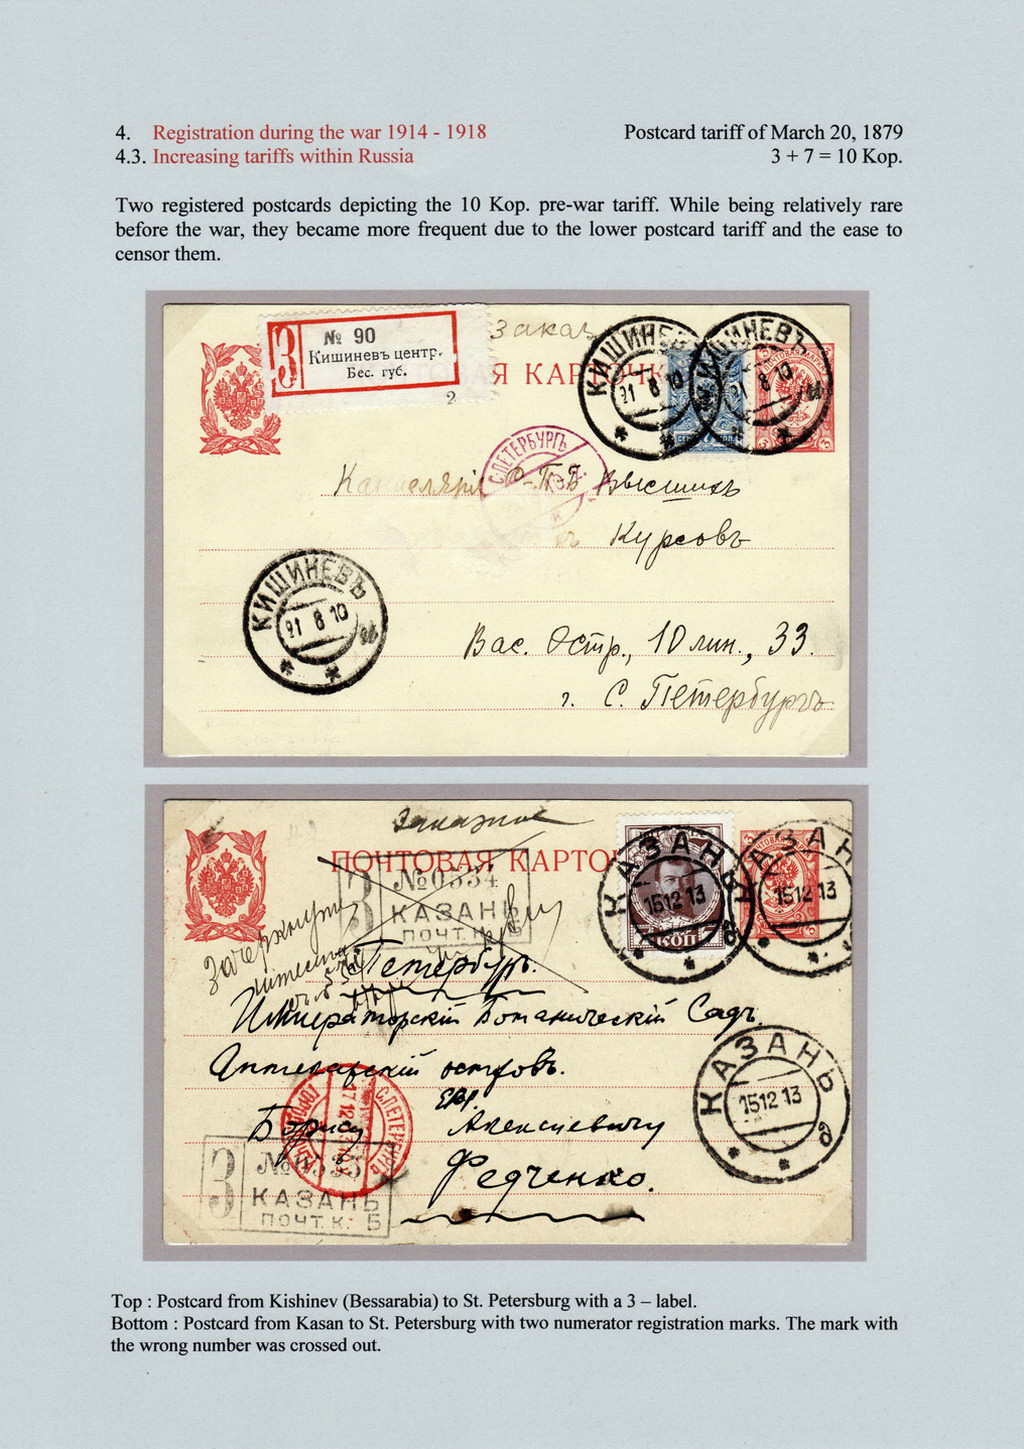 4. Registration during the war 1914 - 1918 Postcard tariff of March 20, 1879
4.3. Increasing tariffs within Russia 3 + 7 = 10 Kop.
Two registered postcards depicting the 10 Kop. pre-war tariff. While being relatively rare
before the war, they became more frequent due to the lower postcard tariff and the ease to
censor them.
З
№ 90
Кишиневъ центр.
Бес. губ.
2
Заказ
Я КАР
КИШИНЕВЪ
21 8 10
КИШИНЕВЪ
21 8 10
С.ПЕТЕРБУРГЪ
Канцелярія С-П-Б Высшихъ
Курсовъ
КИШИНЕВЪ
21 8 10
Вас. Остр., 10 лин., 33.
г. С. Петербургъ
Заказное
ПОЧТОВАЯ КАРТО
З
№ 0534
КАЗАНЬ
ПОЧТ. К. Б
КАЗАНЬ
15 12 13
7 КОП 7
КАЗАНЬ
15 12 13
Зачеркнуты
С Петербург.
Императорскій Ботаническій Садъ
Аптекарскій островъ.
КАЗАНЬ
15 12 13
С.ПЕТЕРБУРГЪ
17.12
Борису Алексѣевичу
Федченко.
З
№ 0535
КАЗАНЬ
ПОЧТ. К. Б
Top : Postcard from Kishinev (Bessarabia) to St. Petersburg with a 3 – label.
Bottom : Postcard from Kasan to St. Petersburg with two numerator registration marks. The mark with
the wrong number was crossed out.